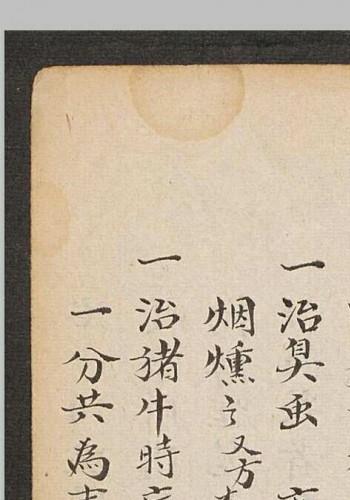 一治臭虫
烟燻之又方
一治猪牛時
一分共為